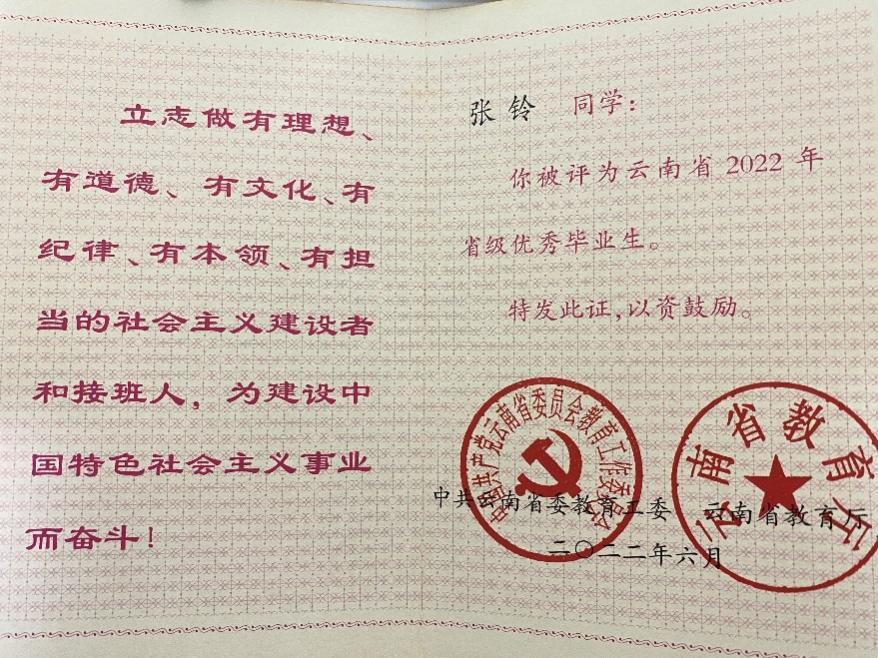 立志做有理想、
有道德、有文化、有
纪律、有本领、有担
当的社会主义建设者
和接班人，为建设中
国特色社会主义事业
而奋斗！
张铃 同学：
你被评为云南省2022年
省级优秀毕业生。
特发此证，以资鼓励。
中国共产党云南省委员会教育工作委员会
云南省教育厅
中共云南省委教育工委 云南省教育厅
二〇二二年六月